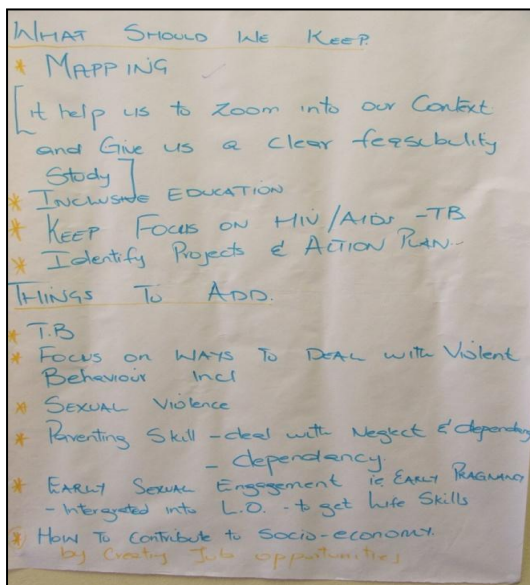 WHAT SHOULD WE KEEP.
* MAPPING
[it help us to Zoom into our Context
and Give us a clear feasibulity
Study]
* INCLUSIVE EDUCATION
* KEEP FOCUS ON HIV/AIDS -TB
* Identify Projects & ACTION PLAN..
THINGS TO ADD.
* T.B
* FOCUS ON WAYS TO DEAL with Violent
Behaviour Incl
* SEXUAL Violence
* Parenting Skill - deal with Neglect & dependency
- dependancy.
* EARLY SEXUAL Engagement ie EARLY PRAGNANCY
- Intergrated into L.O. - to get Life Skills
* HOW TO Contribute to Socio-economy.
by Creating Job opportunities